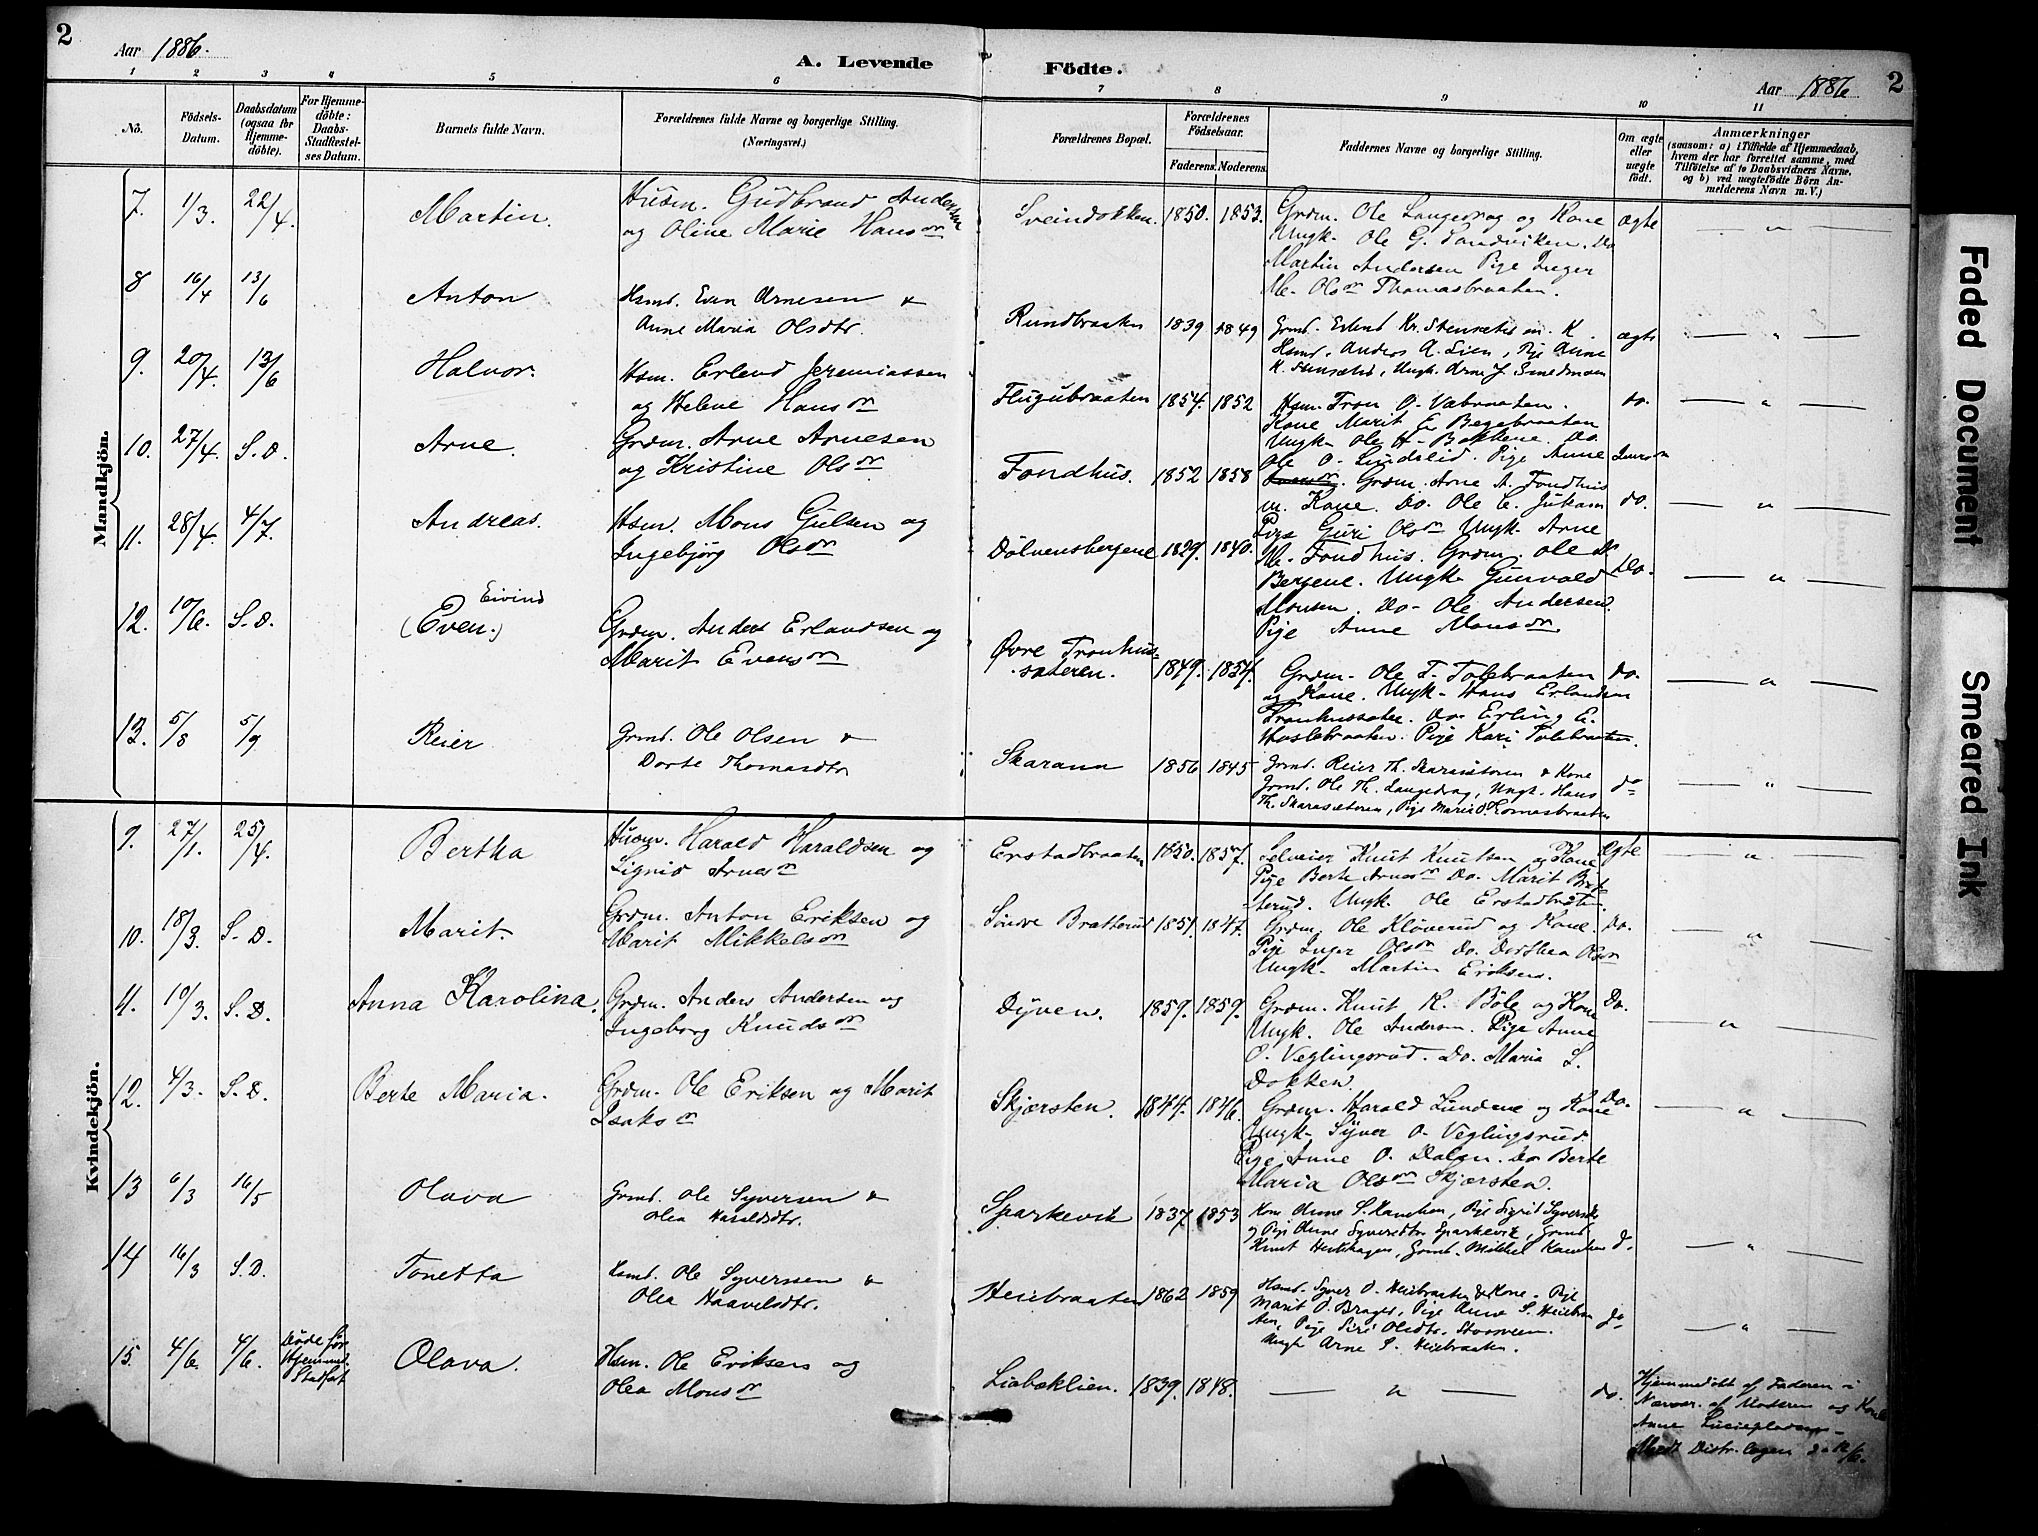 2
Aar 1886.
A. Levende Födte.
Aar 1886
2
1 2 3 4 5 6 7 8 9 10 11
No.
Födsels-Datum.
Daabsdatum (ogsaa for Hjemme-döbte).
For Hjemme-döbte: Daabs-Stadfæstel-ses Datum.
Barnets fulde Navn.
Forældrenes fulde Navne og borgerlige Stilling.
(Næringsvei.)
Forældrenes Bopæl.
Forældrenes Födselsaar.
Faderens. Moderens.
Faddernes Navne og borgerlige Stilling.
Om ægte eller uægte födt.
Anmærkninger
(saasom: a) i Tilfælde af Hjemmedaab,
hvem der har forrettet samme, med
Tilföielse af to Daabsvidners Navne,
og b) ved uægtefödte Börn An-
melderens Navn m. V.)
Mandkjön.
7. 1/3. 22/4. Martin. Husm. Gudbrand Andersen
og Oline Marie Hansdr
Sveindokken. 1850. 1853.
Grdm. Ole Langedrag og Kone
Ungk. Ole G. Sandviken. Do
Martin Andersen Pige Inger
M. Olsdr Thomasbraaten.
ægte — " —
8 16/4 13/6 Anton Hsmd. Even Arnesen &
Anne Maria Olsdtr
Rundbraaten 1839 1849
Grmd. Erlend Kr. Stensetes m. K
Hsmd. Anders A. Lien, Pije Anne
K. Stensetes, Ungk. Arne J. Smedmoen
ægte — " —
9. 20/4. 13/6 Halvor. Hsm. Erlend Jeremiassen
og Helene Hansdr
Flugubraaten 1854. 1852
Hsm. Tron O. Vabraaten.
Kone Marit E. Begebraaten
Ungk. Ole H. Bakkene. Do.
Ole O. Lundslid. Pige Anne
do. — " —
10. 27/4. S.D. Arne. Grdm. Arne Arnesen
og Kristine Olsdr
Fondhus. 1852 1858
Grdm. Arne A. Fondhus
m. Kone. Do. Ole E. Jukam
Pige Guri Olsdr Ungk. Arne
M. Fondhus.
do. — " —
11. 28/4. 4/7. Andreas. Hsm. Mons Gulsen og
Ingebjörg Olsdr
Dölvensbergene 1829. 1840.
Grdm. Ole
Bergene. Ungk. Gunvald
Monsen. Do. Ole Andersen.
Pige Anne Monsdr
Do. — " —
12. 10/6. S.D. Eivind
(Even.) Grdm. Anders Erlandsen og
Marit Evensdr
Øvre Tronhus-
sæteren. 1849. 1854.
Grdm. Ole T. Tolebraaten
og Kone. Ungk. Hans Erlandsen
Tronhussæter. Do. Erling E.
Haslebraaten. Pige Kari Tolebraaten.
do. — " —
13. 5/8 5/9 Reier Grmd. Ole Olsen &
Dorte Thomasdtr
Skarann 1856 1845
Grmd. Reier Th. Skarasetoren & Kone
Grmd. Ole Th. Langedrag, Ungk. Hans
Th. Skarasetoren, Pige Marie O. Tomasbraaten
do — " —
Kvindekjön.
9. 27/1. 25/4. Bertha Husm. Harald Haraldsen og
Sigrid Arnesdr
Erstadbraaten 1850. 1857.
Selveier Knut Knutsen og Kone
Pige Berte Arnesdr Do. Marit Brat-
terud. Ungk. Ole Erstadbråten.
Ægte — " —
10. 18/3. S.D. Marit. Grdm. Anton Eriksen og
Marit Mikkelsdr
Söndre Bratterud 1851. 1847.
Grdm. Ole Klöverud og Kone.
Pige Inger Olsdr Do. Dorthea Olsdr
Ungk. Martin Eriksen.
Do. — " —
11. 10/3. S.D. Anna Karolina. Grdm. Anders Andersen og
Ingeborg Knudsdr
Dyven. 1859. 1859.
Grdm. Knut K. Böle og Kone
Ungk. Ole Andersen. Pige Anne
O. Veglingsrud. Do. Maria S.
Dokken.
Do. — " —
12. 4/3. S.D. Berte Maria. Grdm. Ole Eriksen og Marit
Isaksdr
Skjærsten. 1844. 1846.
Grdm. Harald Lundene og Kone
Ungk. Syver O. Veglingsrud.
Pige Anne O. Dalen. Do Berte
Maria Olsdr Skjærsten.
Do. — " —
13 6/3 16/5 Olava Grmd. Ole Syversen &
Olea Haraldsdtr.
Sparkevik 1837 1853
Kone Anne S. Kamhen, Pije Sigrid Syversdr
og Pije Anne Syversdtr Sparkevik, Grmd.
Knut Heikhagen, Grmd. Mikkel Kamhen
do. — " —
14 16/3 S.D. Tonetta Hsmd. Ole Syversen &
Olea Haavelsdtr.
Heiebraaten 1862 1859
Hsmd. Syver O. Heiebraaten & Kone. Pije
Marit O. Brager, Pije Anne S. Heiebraa
ten, Pije Siri Olsdtr. Storveen.
Ungk Arne S. Heiebraaten.
do — " —
15. 4/6. 4/6. Döde för
Hjemmed.
Stadfæst Olava. Hsm. Ole Eriksen og
Olea Monsdr
Liabæklien. 1839. 1848. — " — do.
Hjemmedöbt af Faderen i
Nærvær. af Moderen og Kone
Anne Luciepladsen
Meldt Distr. lægen d.
Faded Document
Smeared Ink